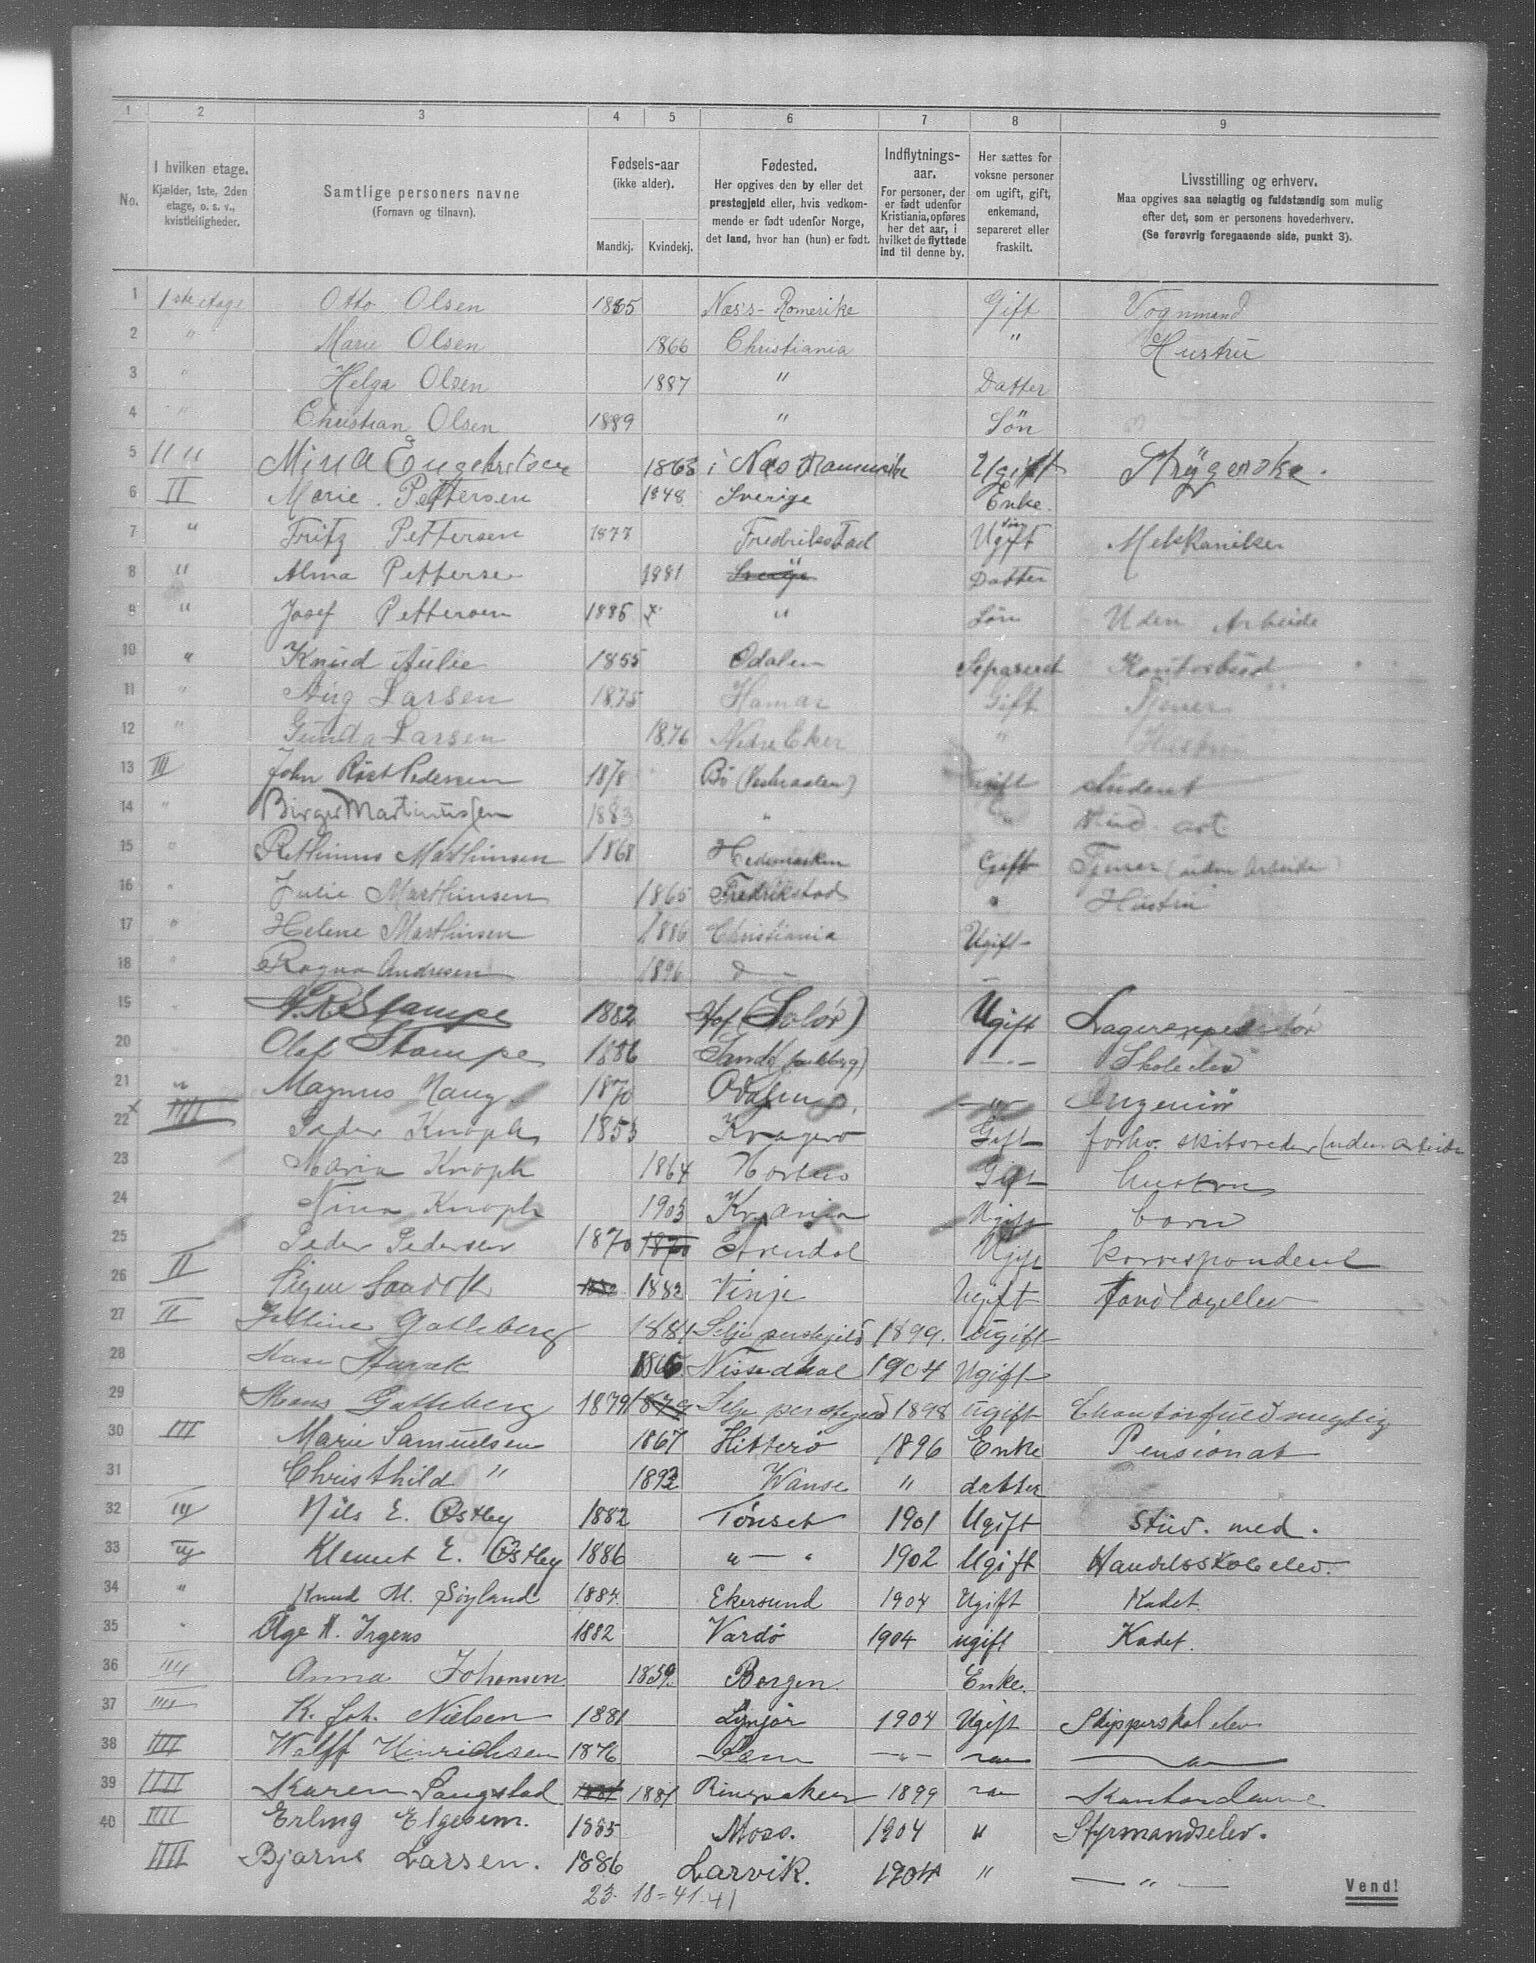 1 2 3 4 5 6 7 8 9
No. I hvilken etage. Kjælder, 1ste, 2den etage, o. s. v., kvistleiligheder. Samtlige personers navne (Fornavn og tilnavn). Fødsels-aar (ikke alder). Mandkj. Kvindekj. Fødested. Her opgives den by eller det prestegjeld eller, hvis vedkommende er født udenfor Norge, det land, hvor han (hun) er født. Indflytnings-aar. For personer, der er født udenfor Kristiania, opføres her det aar, i hvilket de flyttede ind til denne by. Her sættes for voksne personer om ugift, gift, enkemand, separeret eller fraskilt. Livsstilling og erhverv. Maa opgives saa nøiagtig og fuldstændig som mulig efter det, som er personens hovederhverv. (Se forøvrig foregaaende side, punkt 3).
1 1ste etage Otto Olsen 1865 Næs's - Romerike Gift Vognmand
2 " Marie Olsen 1866 Christiania " Hustru
3 " Helga Olsen 1887 " Datter
4 " Christian Olsen 1889 " Søn
5 " " Mina Engebretsen 1863 i Næs Romerike Ugift Strygerske.
6 II Marie Pettersen 1848 Sverige Enke.
7 " Fritz Pettersen 1877 Fredriksstad Ugift Mekkaniker
8 " Alma Pettersen 1881 " Datter
9 " Josef Pettersen 1885 " Søn Uden Arbeide
10 " Knud Aulie 1855 Odalen Separeret Kontorbud
11 " Aug Larsen 1875 Hamar Gift Tjener
12 " Gunda Larsen 1876 Nedre Eker " Hustru
13 III John Røst Pedersen 1878 Bø (Vesteraalen) Ugift student
14 " Birger Martinussen 1883 " "
15 " Marthinsen 1868 Hedemarken Gift Tjener (uden Arbeide)
16 " Julie Marthinsen 1865 Fredrikstad " Hustru
17 " Helene Marthinsen 1886 Christiania Ugift
18 " Ragna Andresen 1896 d —
19 Stampe 1882 Hof (Solør) Ugift Lagerexpeditør
20 Olaf Stampe 1886 — " — Skoleelev
21 " Magnus Haug 1870 Odalen — " — Ingeniør
22 x IIII Peder Knoph 1853 Kragerø Gift forhv. skibsreder (uden arbeide
23 Maria Knoph 1864 Horten Gift hustru
24 Nina Knoph 1903 Kr.ania Ugift barn
25 Peder Pedersen 1870 Arendal Ugift korrespondent
26 II Signe 1882 Vinje Ugift Tandlægeelev
27 II Galleberg 1881 Selje 1899. Ugift
28 1865 Nissedal 1904 Ugift
29 Hans Galleberg 1879 Selje 1898 ugift
30 III Marie Samuelsen 1867 Hitterø 1896 Enke Pensionat
31 Christhild " 1892 Vanse " datter
32 III Nils E. Østby 1882 Tønset 1901 Ugift stud. med.
33 III Klemet E. Østby 1886 " — " 1902 Ugift Handelsskoleelev.
34 " Knud M. Søyland 1884 Ekersund 1904 Ugift Kadet.
35 " Aage H. Irgens 1882 Vardø 1904 ugift Kadet.
36 IIII Anna Johansen 1859. Bergen. Enke.
37 IIII K. Joh. Nielsen 1881 Lyngør 1904 Ugift Skipperskol elev
38 IIII Wolff Hinrichsen 1876 — " —
39 IIII Karen Langstad 1881 Ringsaker 1899 Kontordame
40 IIII Erling Elgesem. 1885 Moss. 1904 " Styrmandselev.
IIII Bjarne Larsen. 1886 Larvik. 1904 " — " —
23 18 = 41. 41
Vend!